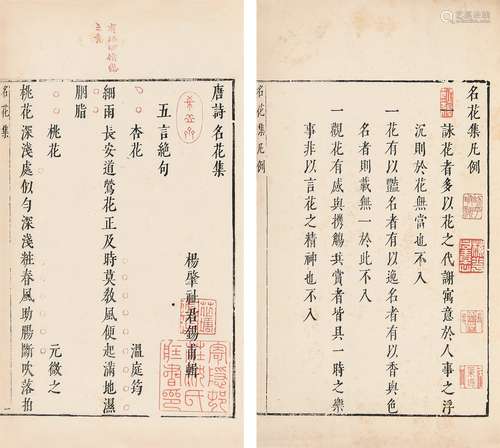 名花集凡例
一詠花者多以花之代謝寓意於人事之浮
沉則於花無當也不入
一花有以豔名者有以逸名者有以香與色
名者則載無一於此不入
一觀花有感與攜觴共賞者皆具一時之樂
事非以言花之精神也不入
名花集凡例
唐詩名花集
楊肇祉君錫甫輯
五言絶句
杏花
溫庭筠
細雨長安道鶯花正及時莫教風便起滿地濕
胭脂
桃花
元微之
桃花深淺處似勻深淺粧春風助腸斷吹落拍
名花集
一